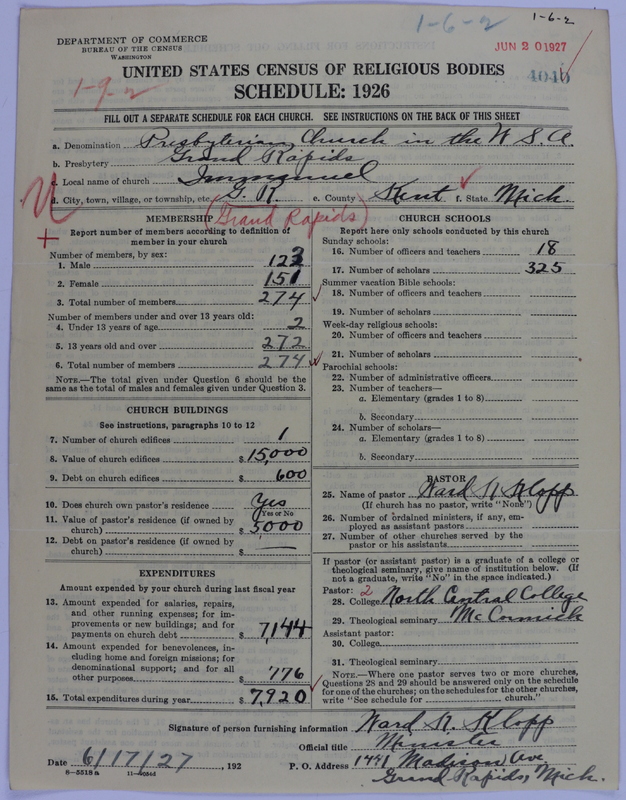 1-6-2
1-6-2
DEPARTMENT OF COMMERCE
BUREAU OF THE CENSUS
WASHINGTON
JUN 20 1927
1-9-2
UNITED STATES CENSUS OF RELIGIOUS BODIES
SCHEDULE: 1926
FILL OUT A SEPARATE SCHEDULE FOR EACH CHURCH. SEE INSTRUCTIONS ON THE BACK OF THIS SHEET
a. Denomination Presbyterian Church in the U S A
b. Presbytery Grand Rapids
c. Local name of church Immanuel
d. City, town, village, or township, etc. G. R. e. County Kent f. State Mich.
(Grand Rapids)
MEMBERSHIP
Report number of members according to definition of
member in your church
Number of members, by sex:
1. Male 123
2. Female 151
3. Total number of members 274
Number of members under and over 13 years old:
4. Under 13 years of age 2
5. 13 years old and over 272
6. Total number of members 274
NOTE.—The total given under Question 6 should be the
same as the total of males and females given under Question 3.
CHURCH BUILDINGS
See instructions, paragraphs 10 to 12
7. Number of church edifices 1
8. Value of church edifices $ 15,000
9. Debt on church edifices $ 600
10. Does church own pastor's residence Yes
Yes or No
11. Value of pastor's residence (if owned by
church) $ 5,000
12. Debt on pastor's residence (if owned by
church) $ —
EXPENDITURES
Amount expended by your church during last fiscal year
13. Amount expended for salaries, repairs,
and other running expenses; for im-
provements or new buildings; and for
payments on church debt $ 7,144
14. Amount expended for benevolences, in-
cluding home and foreign missions; for
denominational support; and for all
other purposes $ 776
15. Total expenditures during year $ 7,920
CHURCH SCHOOLS
Report here only schools conducted by this church
Sunday schools:
16. Number of officers and teachers 18
17. Number of scholars 325
Summer vacation Bible schools:
18. Number of officers and teachers
19. Number of scholars
Week-day religious schools:
20. Number of officers and teachers
21. Number of scholars
Parochial schools:
22. Number of administrative officers
23. Number of teachers—
a. Elementary (grades 1 to 8)
b. Secondary
24. Number of scholars—
a. Elementary (grades 1 to 8)
b. Secondary
PASTOR
25. Name of pastor Ward N. Klopp
(If church has no pastor, write "None")
26. Number of ordained ministers, if any, em-
ployed as assistant pastors
27. Number of other churches served by the
pastor or his assistants
If pastor (or assistant pastor) is a graduate of a college or
theological seminary, give name of institution below. (If
not a graduate, write "No" in the space indicated.)
Pastor: 2
28. College North Central College
29. Theological seminary McCormick
Assistant pastor:
30. College
31. Theological seminary
NOTE.—Where one pastor serves two or more churches,
Questions 28 and 29 should be answered only on the schedule
for one of the churches; on the schedules for the other churches,
write "See schedule for church."
Signature of person furnishing information Ward N. Klopp
Official title Minister
Date 6/17/27, 192 P. O. Address 1441 Madison Ave
Grand Rapids, Mich.
8—5518 a